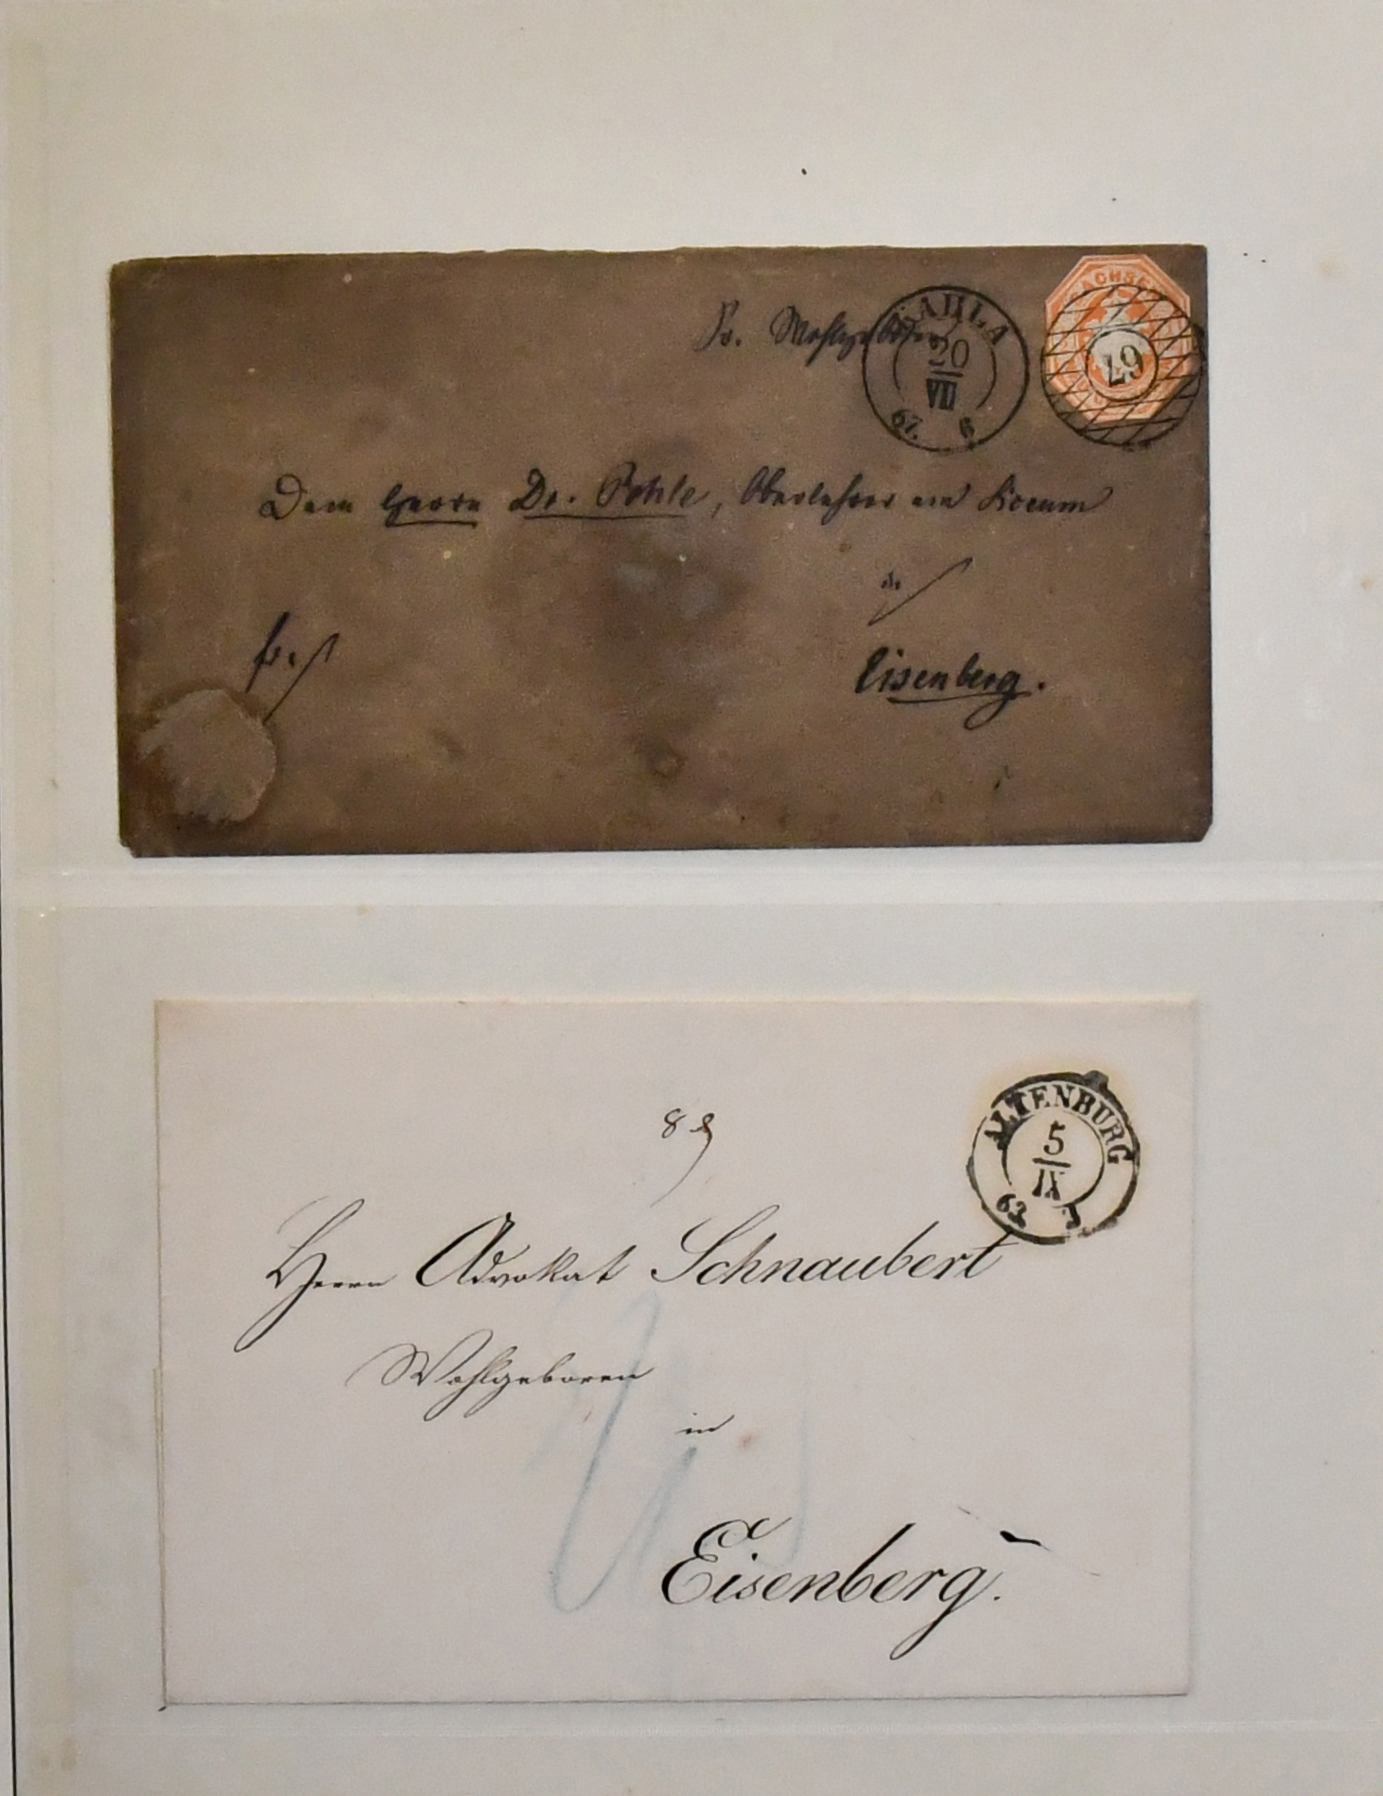 Sr. Wohlgeboren
KAHLA
20
VII
67. 6
SACHSEN
Dem Herrn Dr. Pohle, Oberlehrer am Lyceum
in
fr.
Eisenberg.
ALTENBURG
5
IX
63 3
Herrn Advokat Schnaubert
Wohlgeboren
in
Eisenberg.